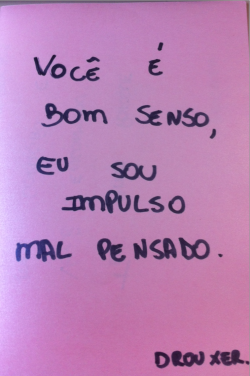 VOCÊ É
BOM SENSO,
EU SOU
IMPULSO
MAL PENSADO.
DROUXER.